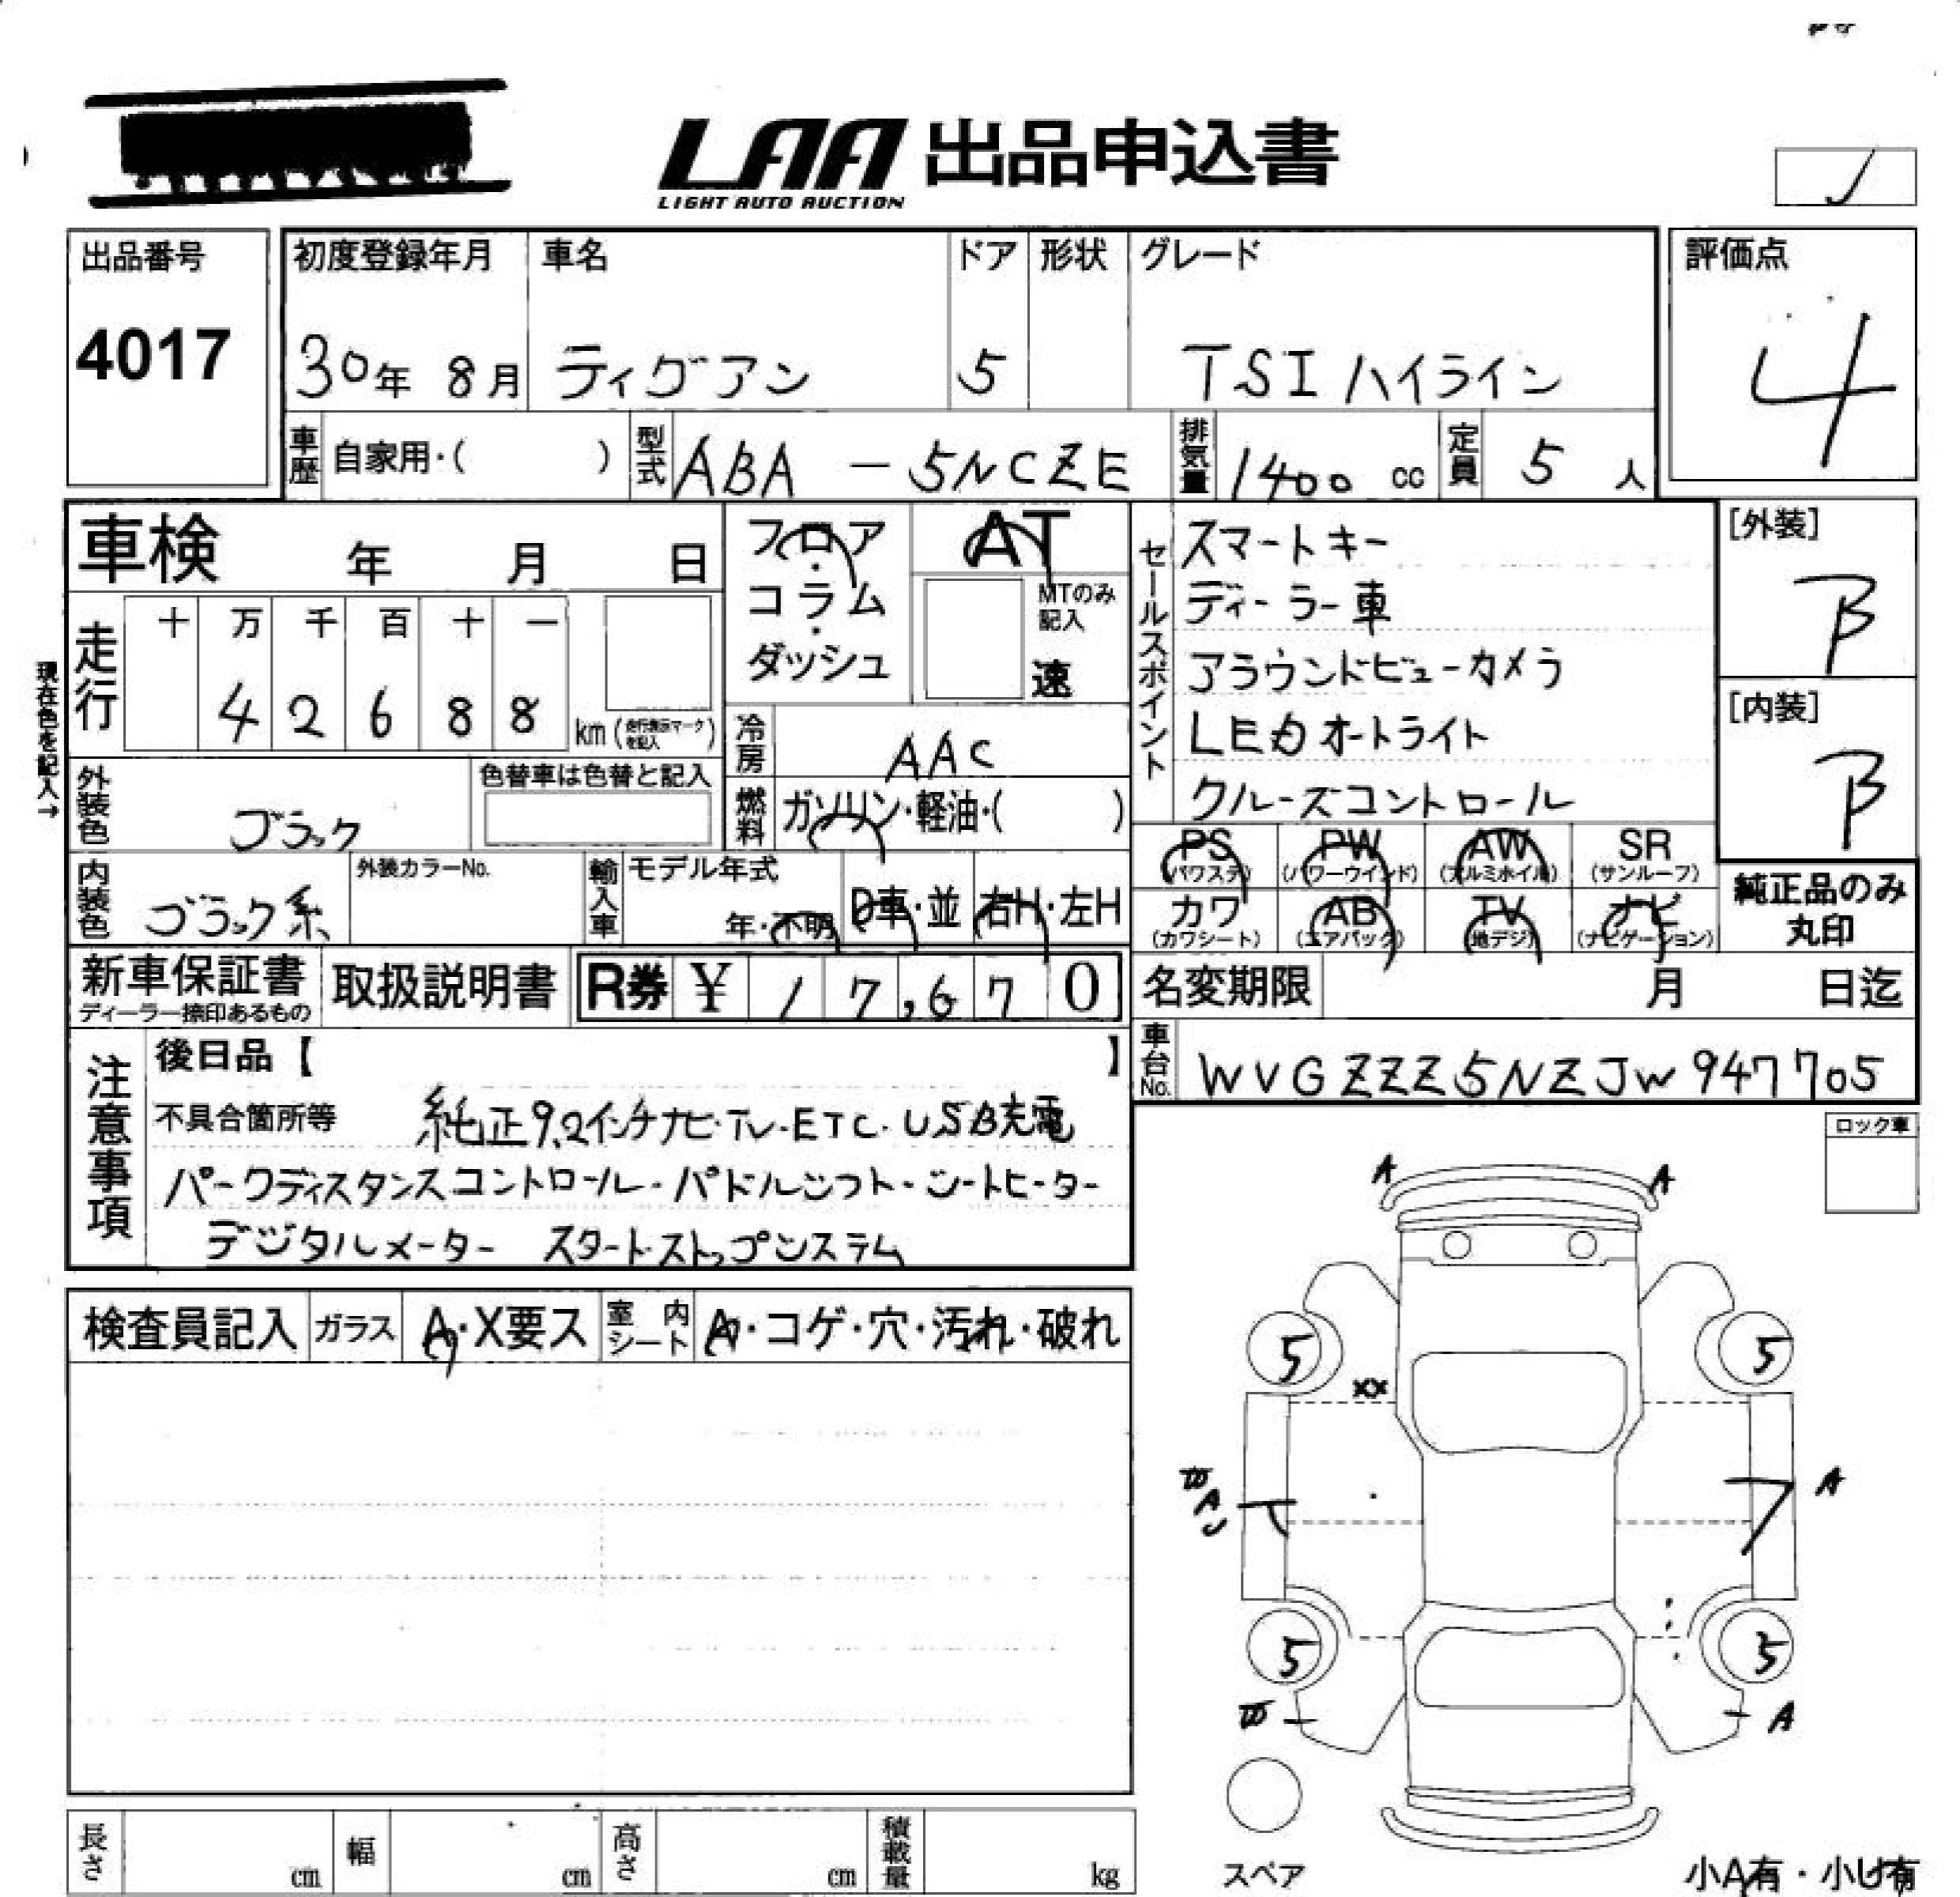 LAA 出品申込書
LIGHT AUTO AUCTION
出品番号
4017
初度登録年月 車名 ドア 形状 グレード
30年 8月 ティグアン 5 TSI ハイライン
評価点
4
車歴 自家用・( ) 型式 ABA - 5NCZE 排気量 1400 cc 定員 5 人
車検 年 月 日
フロア・コラム・ダッシュ
AT
MTのみ記入
速
セールスポイント
スマートキー
ディーラー車
アラウンドビューカメラ
LED オートライト
クルーズコントロール
[外装]
B
[内装]
B
現在色を記入→
走行 十 万 千 百 十 一
4 2 6 8 8 km (走行表示マークを記入)
冷房 AAC
燃料 ガソリン・軽油・( )
外装色 ブラック 色替車は色替と記入
内装色 ブラック系 外装カラーNo. 輸入車 モデル年式 年・不明 D車・並 右H・左H
PS (パワステ) PW (パワーウインド) AW (アルミホイル) SR (サンルーフ)
カワ (カワシート) AB (エアバック) TV (地デジ) ナビ (ナビゲーション)
純正品のみ
丸印
新車保証書 取扱説明書 R券 ¥ 1 7,6 7 0
ディーラー捺印あるもの
名変期限 月 日迄
車台No. WVGZZZ5NZJW947705
注意事項
後日品【 】
不具合箇所等 純正9.2インチナビ・TV・ETC・USB充電
パークディスタンスコントロール・パドルシフト・シートヒーター
デジタルメーター スタートストップシステム
ロック車
検査員記入 ガラス A・X要ス 室内シート A・コゲ・穴・汚れ・破れ
A A
5 5
XX
A
A
5 5
A
長さ cm 幅 cm 高さ cm 積載量 kg
スペア
小A有・小U有